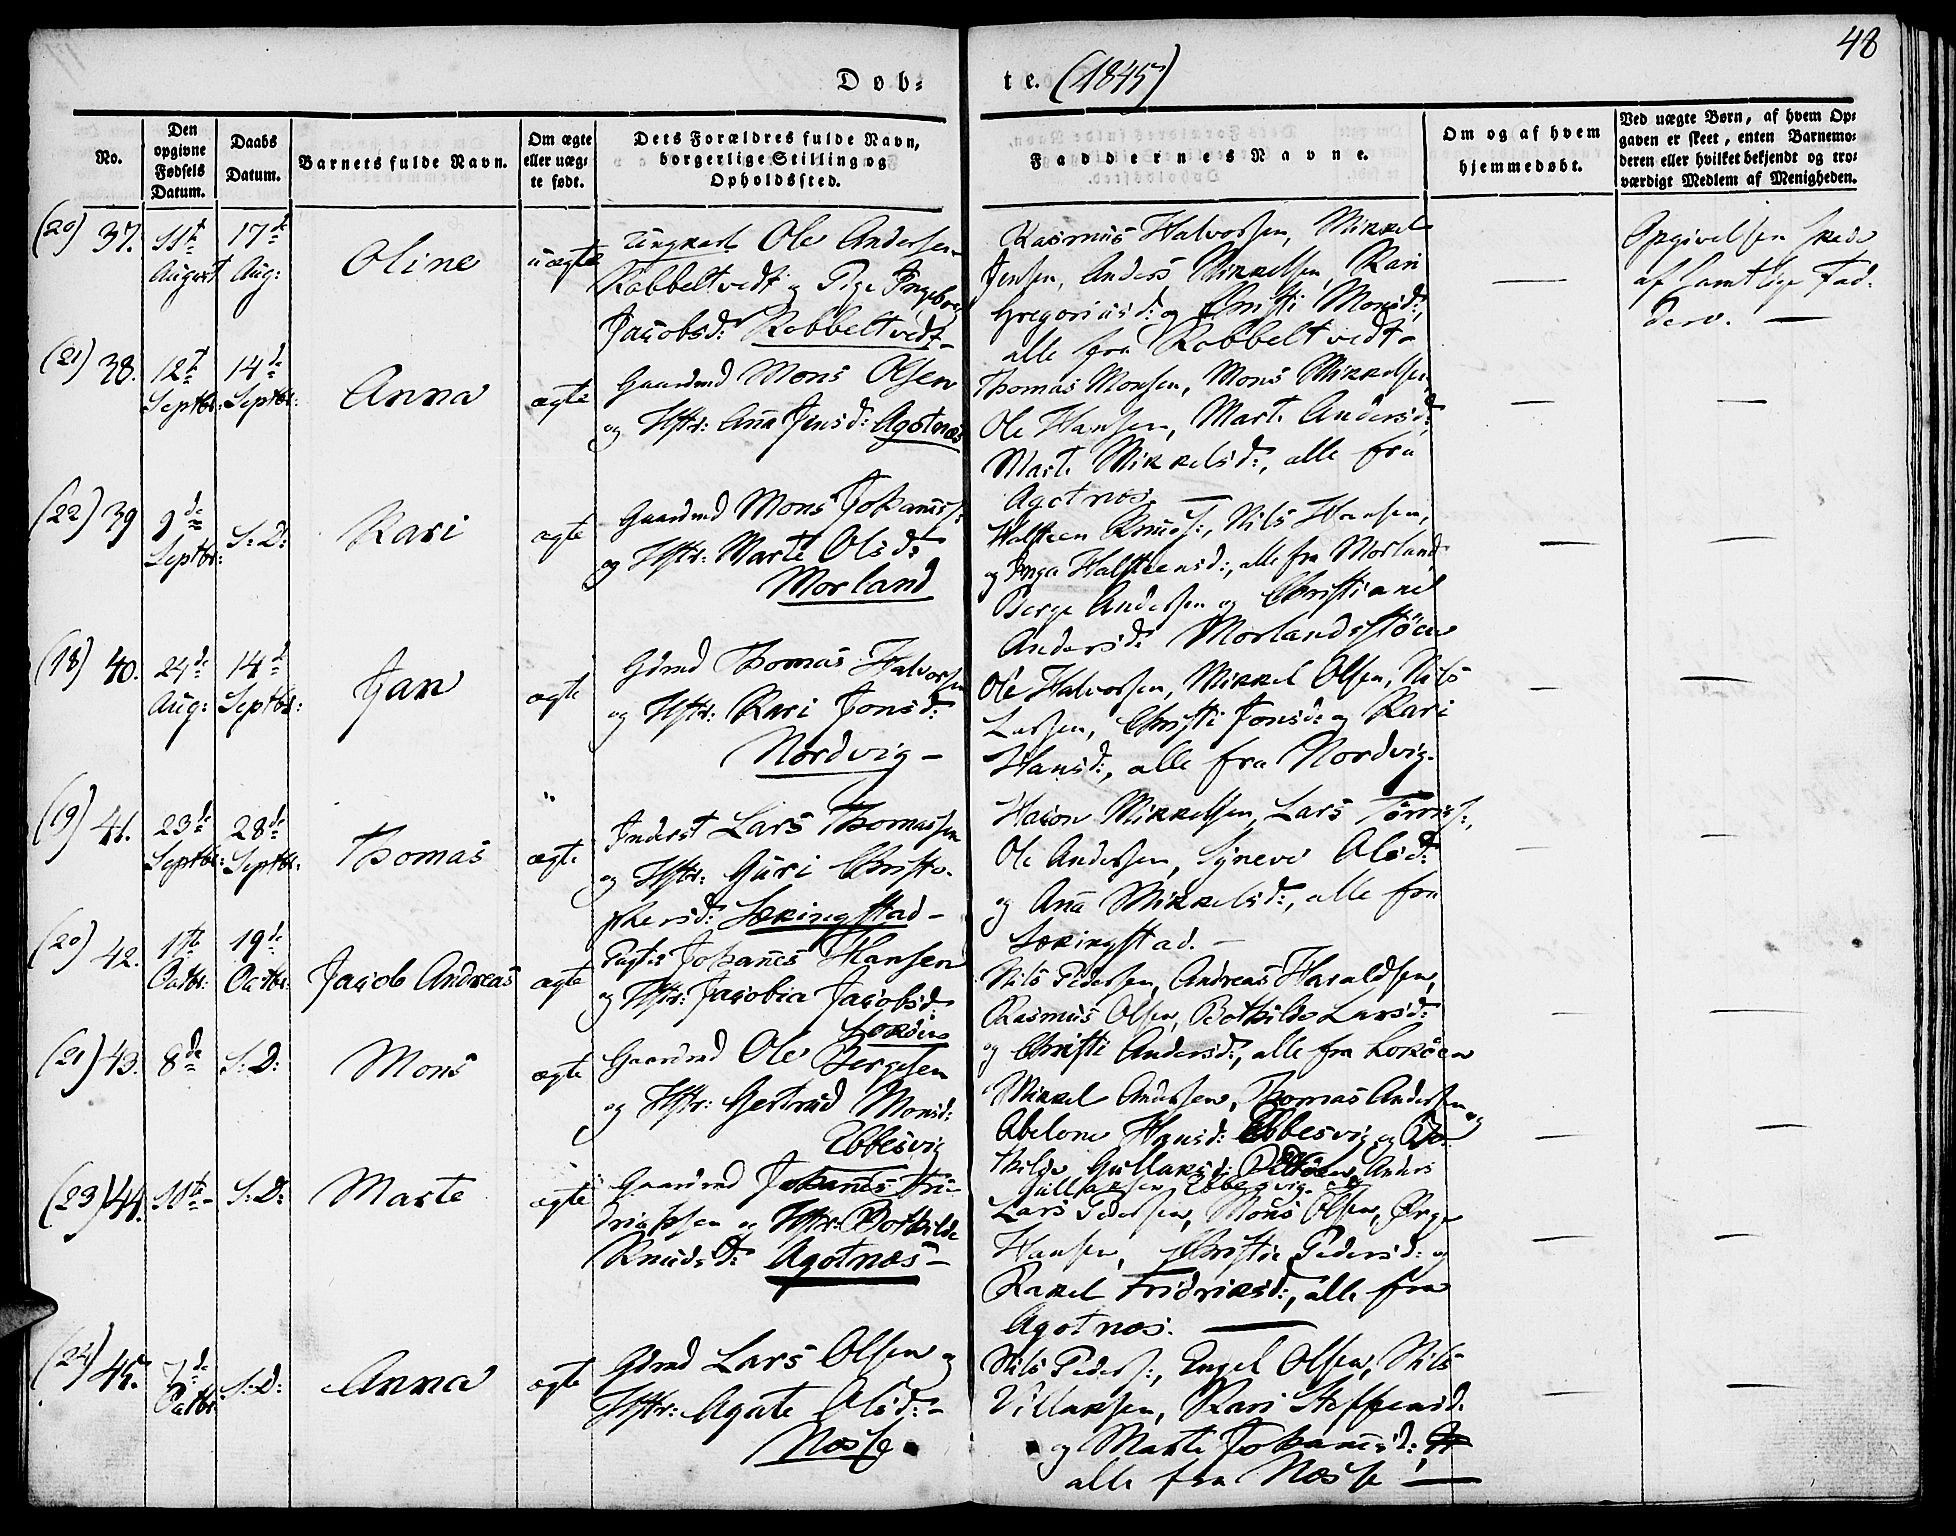 48
Døb:
te. (1845)
No.
Den opgivne Fødsels Datum.
Daabs Datum.
Barnets fulde Navn.
Om ægte eller uæg- te født.
Dets Forældres fulde Navn, borgerlige Stilling og Opholdssted.
Faddernes Navne.
Om og af hvem hjemmedøbt.
Ved uægte Børn, af hvem Op- gaven er skeet, enten Barnemo- deren eller hvilket bekjendt og tro- værdigt Medlem af Menigheden.
(20) 37. 11te August
17de Aug:
Oline
uægte
Ungkarl Ole Andersen
Kobbeltvedt og Pige Ingebor
Jacobsd: Kobbeltvedt -
Rasmus Halvorsen, Mikkel
Jensen, Anders Mikkelsen, Kari
Gregoriusd: og Christi Monsd:,
alle fra Kobbeltvedt -
Opgivelsen skede
af samtlige Fad-
dere. —
(21) 38. 12te Septbr:
14de Septbr:
Anna
ægte
Gaardmd Mons Olsen
og Hstr: Ana Jensd: Agotnæs
Thomas Monsen, Mons Mikkelsen
Ole Hansen, Marte Andersd:,
Marte Mikkelsd:, alle fra
Agotnæs. —
(22) 39 9de Septbr:
S: D:
Kari
ægte
Gaardmd Mons Johaness:
og Hstr: Marte Olsd:
Morland
Halsteen Knuds:, Nils Hansen,
og Inga Halsteensd:, alle fra Morland,
Berge Andersen og Christiane
Andersd: Morlandsstöen
(18) 40. 24de Aug:
14de Septbr:
Jan
ægte
Gdmd Thomas Halvorsen
og Hstr: Kari Jonsd:
Nordvig -
Ole Halvorsen, Mikkel Olsen, Nils
Larsen, Christi Jonsd: og Kari
Hansd:, alle fra Nordvig.
(19) 41. 23de Septbr:
28de Septbr:
Thomas
ægte
Inderst Lars Thomassen
og Hstr: Guri Christo-
phersd: Sækingstad -
Hacon Mikkelsen, Lars Törriss:,
Ole Andersen, Syneve Olsd:
og Ana Mikkelsd:, alle fra
Sækingstad. -
(20) 42. 1te Octbr:
19de Octbr:
Jacob Andreas
ægte
Johanes Hansen
og Hstr: Jacobia Jacobsd:
Loköen
Nils Pedersen, Andreas Haraldsen,
Rasmus Olsen, Bothilde Larsd:
og Christi Andersd:, alle fra Loköen
(21) 43. 8de
S: D:
Mons
ægte
Gaardmd Ole Bergesen
og Hstr: Gertrud Monsd:
Ebbesvig
Mikkel Andersen, Thomas Andersen og
Abelone Hansd: Ebbesvig og Bo-
thilde Gullaksd: Anders
Gullaksen Ebbesvig.
(23) 44. 10te -
S: D:
Marte
ægte
Gaardmd Johanes Fri-
drichsen og Hstr: Bothilde
Knudsd: Agotnæs -
Lars Pedersen, Mons Olsen, Örge
Hansen, Christie Pedersd: og
Rakel Fridriksd:, alle fra
Agotnæs. —
(24) 45. 7de Octbr:
S: D:
Anna
ægte
Gdmd Lars Olsen og
Hstr: Agate Olsd: -
Næsse
Nils Peders:, Engel Olsen, Nils
Villaksen, Kari Steffensd:
og Marte Johanesd:,
alle fra Næsse —